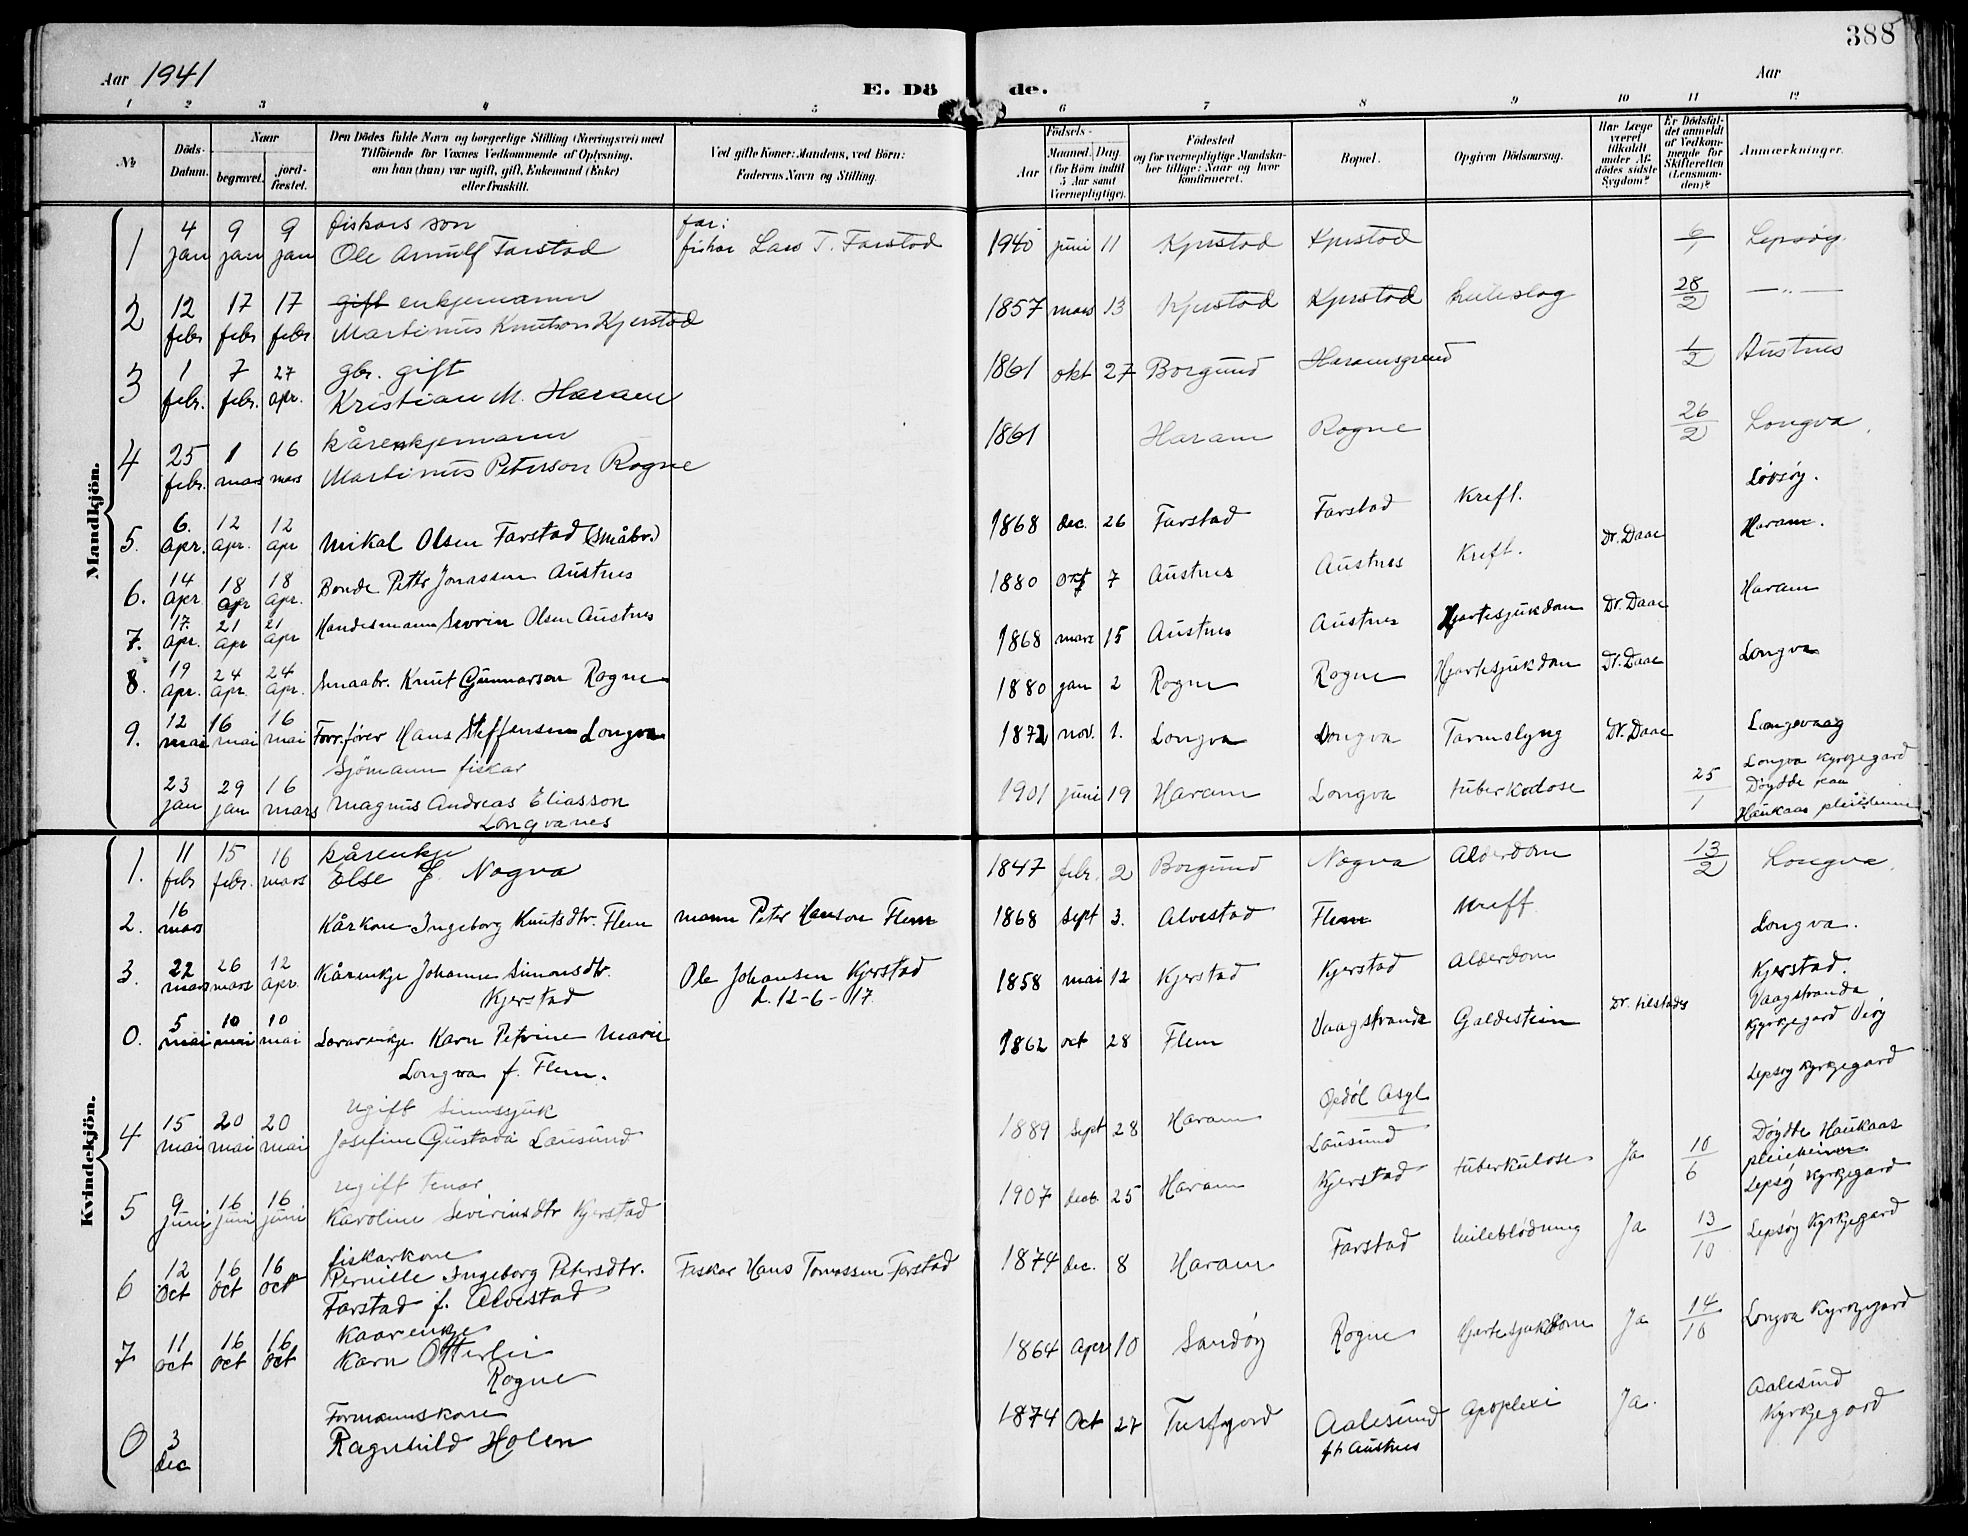 388
Aar 1941
Aar
E. Dö
de.
1 2 3 4 5 6 7 8 9 10 11 12
No
Döds-Datum.
Naar
begravet.
jord-fæstet.
Den Dödes fulde Navn og borgerlige Stilling (Næringsvei) med
Tilföiende for Voxnes Vedkommende af Oplysning,
om han (hun) var ugift, gift, Enkemand (Enke)
eller fraskilt.
Ved gifte Koner: Mandens, ved Börn:
Faderens Navn og Stilling.
Födsels-
Aar
Maaned. Dag
(for Börn indtil
5 Aar samt
Værnepligtige).
Födested
og for værnepligtige Mandska-
ber tillige: Naar og hvor
konfirmeret.
Bopæl.
Opgiven Dödsaarsag.
Har Læge
været
tilkaldt
under Af-
dödes sidste
Sygdom?
Er Dödsfal-
det anmeldt
af Vedkom-
mende for
Skifteretten
(Lensman-
den)?
Anmærkninger.
Mandkjön.
1 4 jan 9 jan 9 jan fiskars son
Ole Arnulf Farstad far:
fiskar Lars T. Farstad 1940 juni 11 Kjerstad Kjerstad 6/1 Lepsøy.
2 12 febr 17 febr 17 febr gift enkjemann
Martinus Knutson Kjerstad 1857 mars 13 Kjerstad Kjerstad 28/2 — „ —
3 1 febr. 7 febr. 27 apr. gbr. gift
Kristian M. Haram 1861 okt 27 Borgund Haramsgrend 1/2 Austnes
4 25 febr. 1 mars 16 mars kårenkjemann
Martinus Peterson Rogne 1861 Haram Rogne 26/2 Longva.
5. 6. apr. 12 apr. 12 apr Mikal Olsen Farstad (småbr.) 1868 dec. 26 Farstad Farstad Kreft. Løvsøy.
6. 14 apr. 18 apr 18 apr. Bonde Petter Jonassen Austnes 1880 7 Austnes Austnes Kreft. Dr. Daae Haram.
7. 17. apr. 21 apr 21 apr Handesmann Sevrin Olsen Austnes 1868 mars 15 Austnes Austnes Hjartesjukdom Dr. Daae Haram
8. 19 apr. 24 apr. 24 apr. Smaabr. Knut Gunnarson Rogne 1880 jan 2 Rogne Rogne Hjartesjukdom Dr. Daae Longva
9. 12 mai 16 mai 16 mai Forr.fører Hans Steffensen Longva 1872 nov. 1. Longva Longva Tarmslyng Dr. Daae Langevaag
23 jan 29 jan 16 mars Sjømann fiskar
Magnus Andreas Eliasson
Longvanes 1901 juni 19 Haram Longva tuberkulose 25/1 Longva Kyrkjegard
Døydde
Haukaas pleieheim
Kvindekjön.
1. 11 febr 15 febr. 16 mars kårenkje
Else J. Nogva 1847 febr. 2 Borgund Nogva Alderdom 13/2 Longva.
2. 16 mars Kårkone Ingeborg Knutsdtr. Flem mann Peter Hanson Flem 1868 sept 3. Alvestad Flem Longva.
3. 22 mars 26 mars 12 apr. Kårenkje Johanne Simonsdtr.
Kjerstad Ole Johansen Kjerstad
d. 12-6-17. 1858 mai 12 Kjerstad Kjerstad Alderdom Kjerstad.
0. 5 mai 10 mai 10 mai Lærarenkje Karn Petrine Marie
Longva f. Flem. 1862 oct 28 Flem Vaagstranda Galdestein Vaagstranda
Kyrkjegard
4 15 mai 20 mai 20 mai Ugift Sinnssjuk
Josefine Gustava Lausund 1889 Sept 28 Haram Opdøl Asyl
Lausund Lepsøy Kyrkjegard
5 9 juni 16 juni 16 juni Ugift tenar
Karoline Severinsdtr Kjerstad 1907 25 Haram Kjerstad tuberkulose Ja 10/6 Døydde Haukaas
pleieheim
Lepsøy Kyrkjegard
6 12 Oct 16 Oct 16 Oct fiskarkone
Pernille Ingeborg Petersdtr.
Farstad f. Alvestad Fiskar Hans Tomassen Farstad 1874 dec. 8 Haram Farstad heileblødning Ja 13/10 Lepsøy Kyrkjegard
7 11 oct 16 oct 16 oct Kaarenkje
Karn Otterlei
Rogne 1864 Apr 10 Sandøy Rogne Hjartesjukdom Ja 14/10 Longva Kyrkjegard
0 3 dec Formannskone
Ragnhild Holen 1874 Oct 27 Tusfjord Aalesund
f.h Austnes Apoplexi Ja. Aalesund
Kyrkjegard